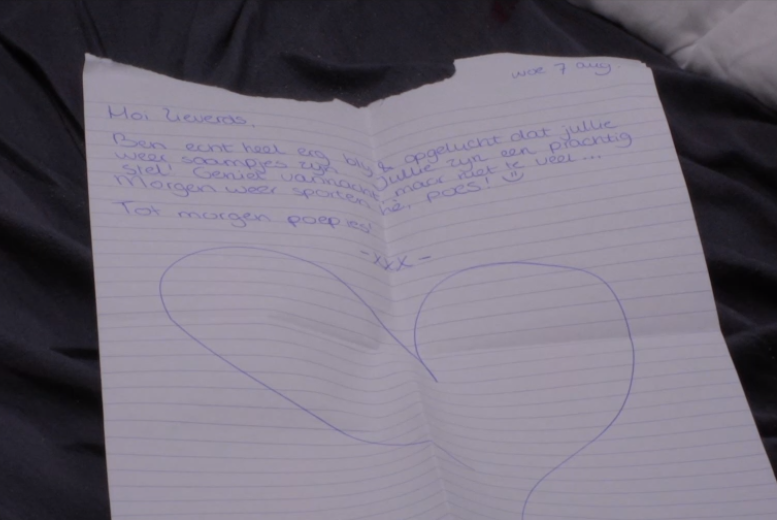 woe 7 aug.
Moi lieverds,
Ben echt heel erg blij & opgelucht dat jullie
weer saampjes zijn. Jullie zijn een prachtig
stel! Geniet vannacht, maar niet te veel...
Morgen weer sporten hè, poes! ☺
Tot morgen poepies!
-xxx-